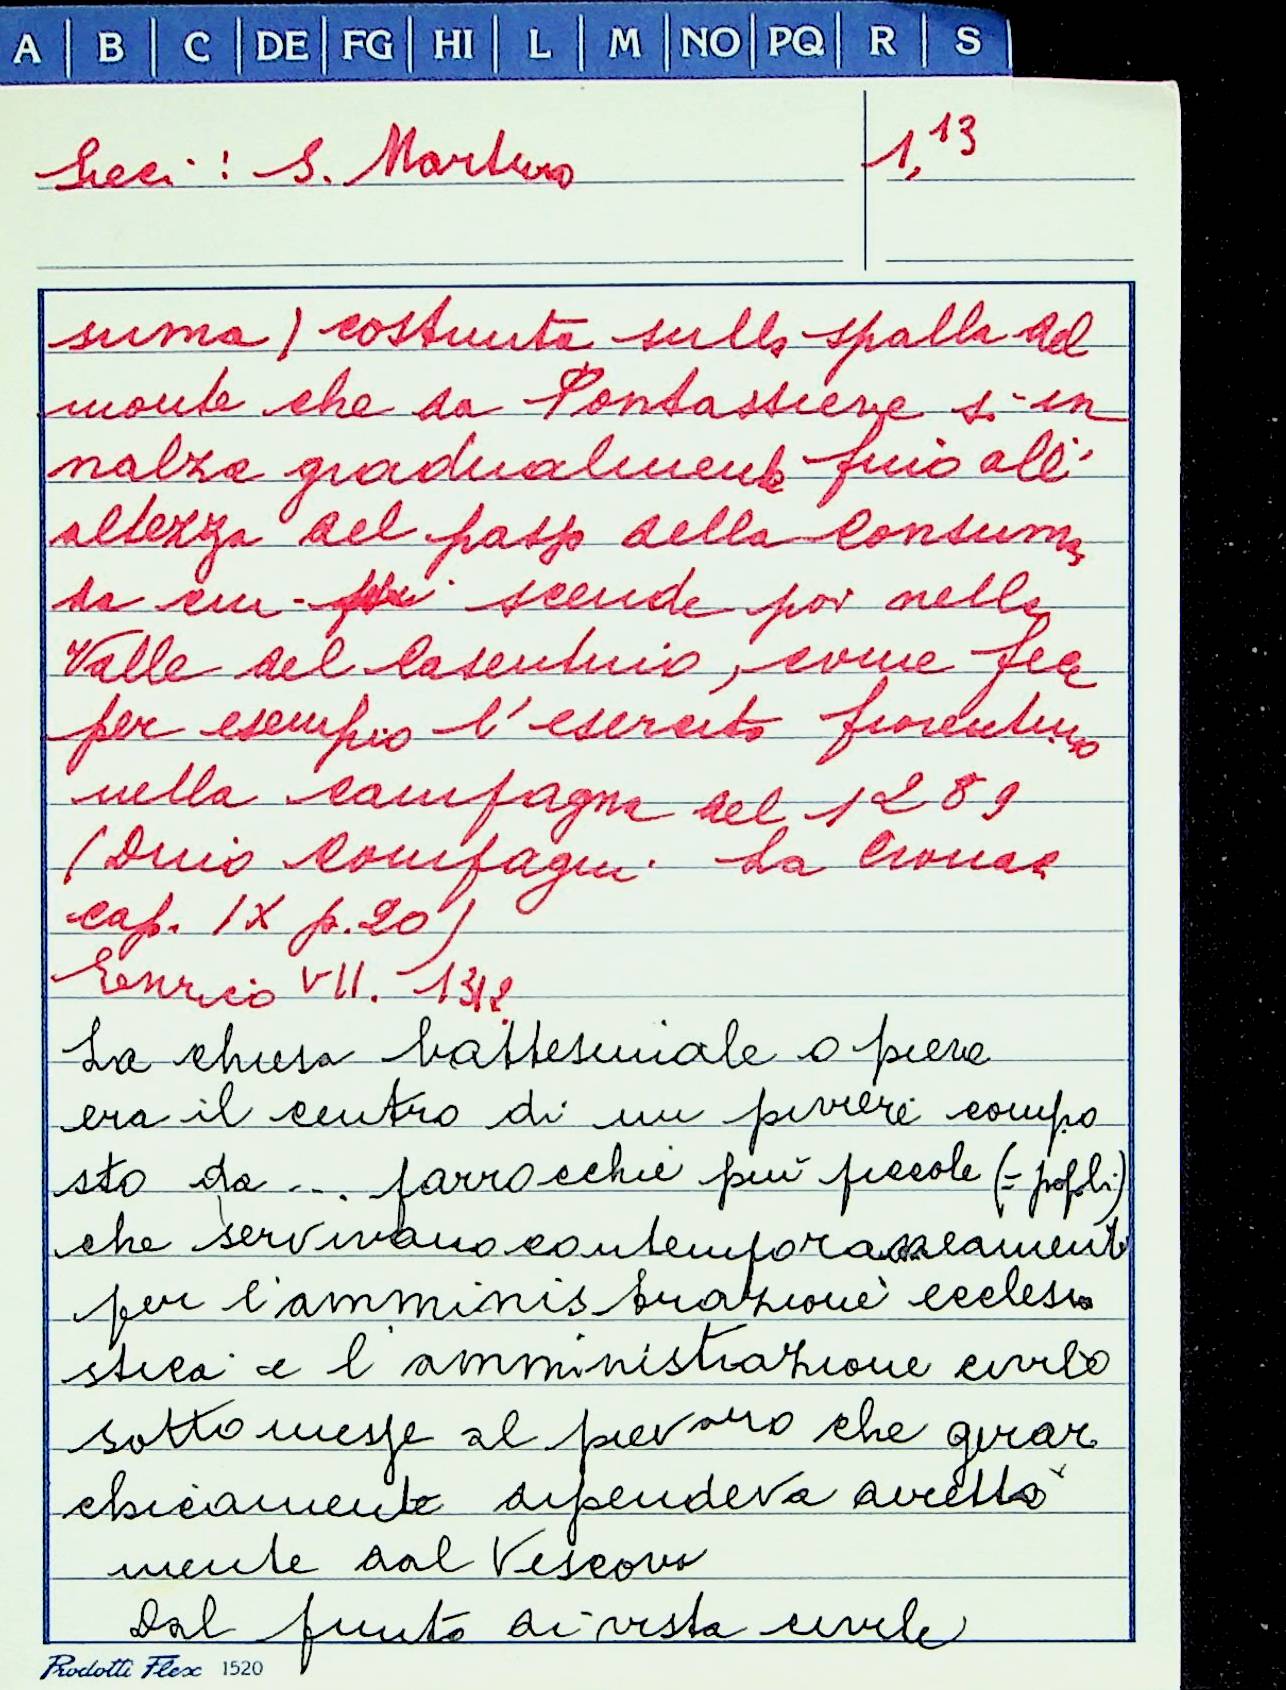 A | B | C | DE | FG | HI | L | M | NO | PQ | R | S
Sieci: S. Martino
1,13
suma) costruita sulla spalla del
monte che da Pontassieve s'in
nalza gradualmente fino all'
altezza del passo della Consuma
da cui scende poi nella
Valle del Casentino, come fece
per esempio l'esercito fiorentino
nella campagna del 1289
(Dino Compagni. La Cronaca
cap. IX p. 20)
Enrico VII. 1312
La chiesa battesimale o pieve
era il centro di un piviere compo
sto da ... parrocchie più piccole (= popoli)
che servivano contemporaneamente
per l'amministrazione ecclesia
stica e l'amministrazione civile
sottomesse al pievano che gerar
chicamente dipendeva diretta
mente dal Vescovo
Dal punto di vista civile
Prodotti Flex 1520